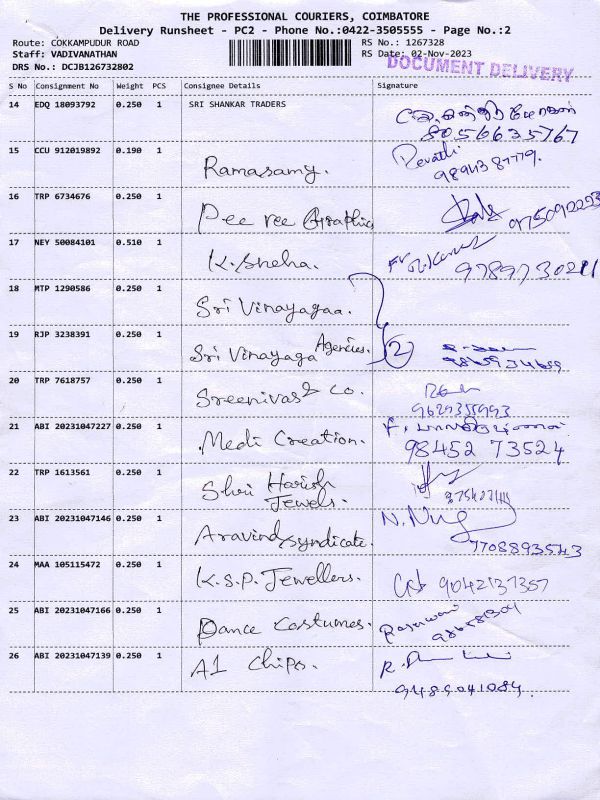 THE PROFESSIONAL COURIERS, COIMBATORE
Delivery Runsheet - PC2 - Phone No.:0422-3505555 - Page No.:2
Route: COKKAMPUDUR ROAD
RS No.: 1267328
Staff: VADIVANATHAN
RS Date: 02-Nov-2023
DOCUMENT DELIVERY
DRS No.: DCJB126732802
S No Consignment No Weight PCS Consignee Details Signature
14 EDQ 18093792 0.250 1 SRI SHANKAR TRADERS
8056635767
15 CCU 912019892 0.190 1 Ramasamy. Revathi
9894387779.
16 TRP 6734676 0.250 1 Pee vee Graphics
975092223
17 NEY 50084101 0.510 1 K. Sneha.
9789730211
18 MTP 1290586 0.250 1 Sri Vinayagaa.
19 RJP 3238391 0.250 1 Sri Vinayaga Agencies. 2
20 TRP 7618757 0.250 1 Sreenivas & Co.
9629355993
21 ABI 20231047227 0.250 1 Medi Creation.
98452 73524
22 TRP 1613561 0.250 1 Shri Harish
Jewels.
23 ABI 20231047146 0.250 1 Aravind syndicate.
7708893543
24 MAA 105115472 0.250 1 K.S.P. Jewellers. 9042137357
25 ABI 20231047166 0.250 1 Dance Costumes.
26 ABI 20231047139 0.250 1 A1 Chips.
9489041084.